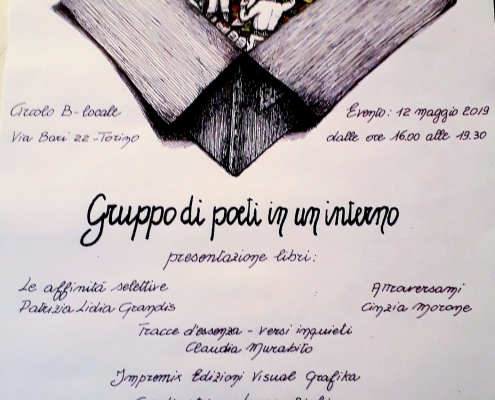 Circolo B-locale
Via Bari 22 - Torino
Evento: 12 maggio 2019
dalle ore 16.00 alle 19.30
Gruppo di poeti in un interno
presentazione libri:
Le affinità selettive
Patrizia Lidia Grandis
Attraversami
Cinzia Morone
Tracce d'essenza - versi inquieti
Claudia Murabito
Impremix Edizioni Visual Grafika